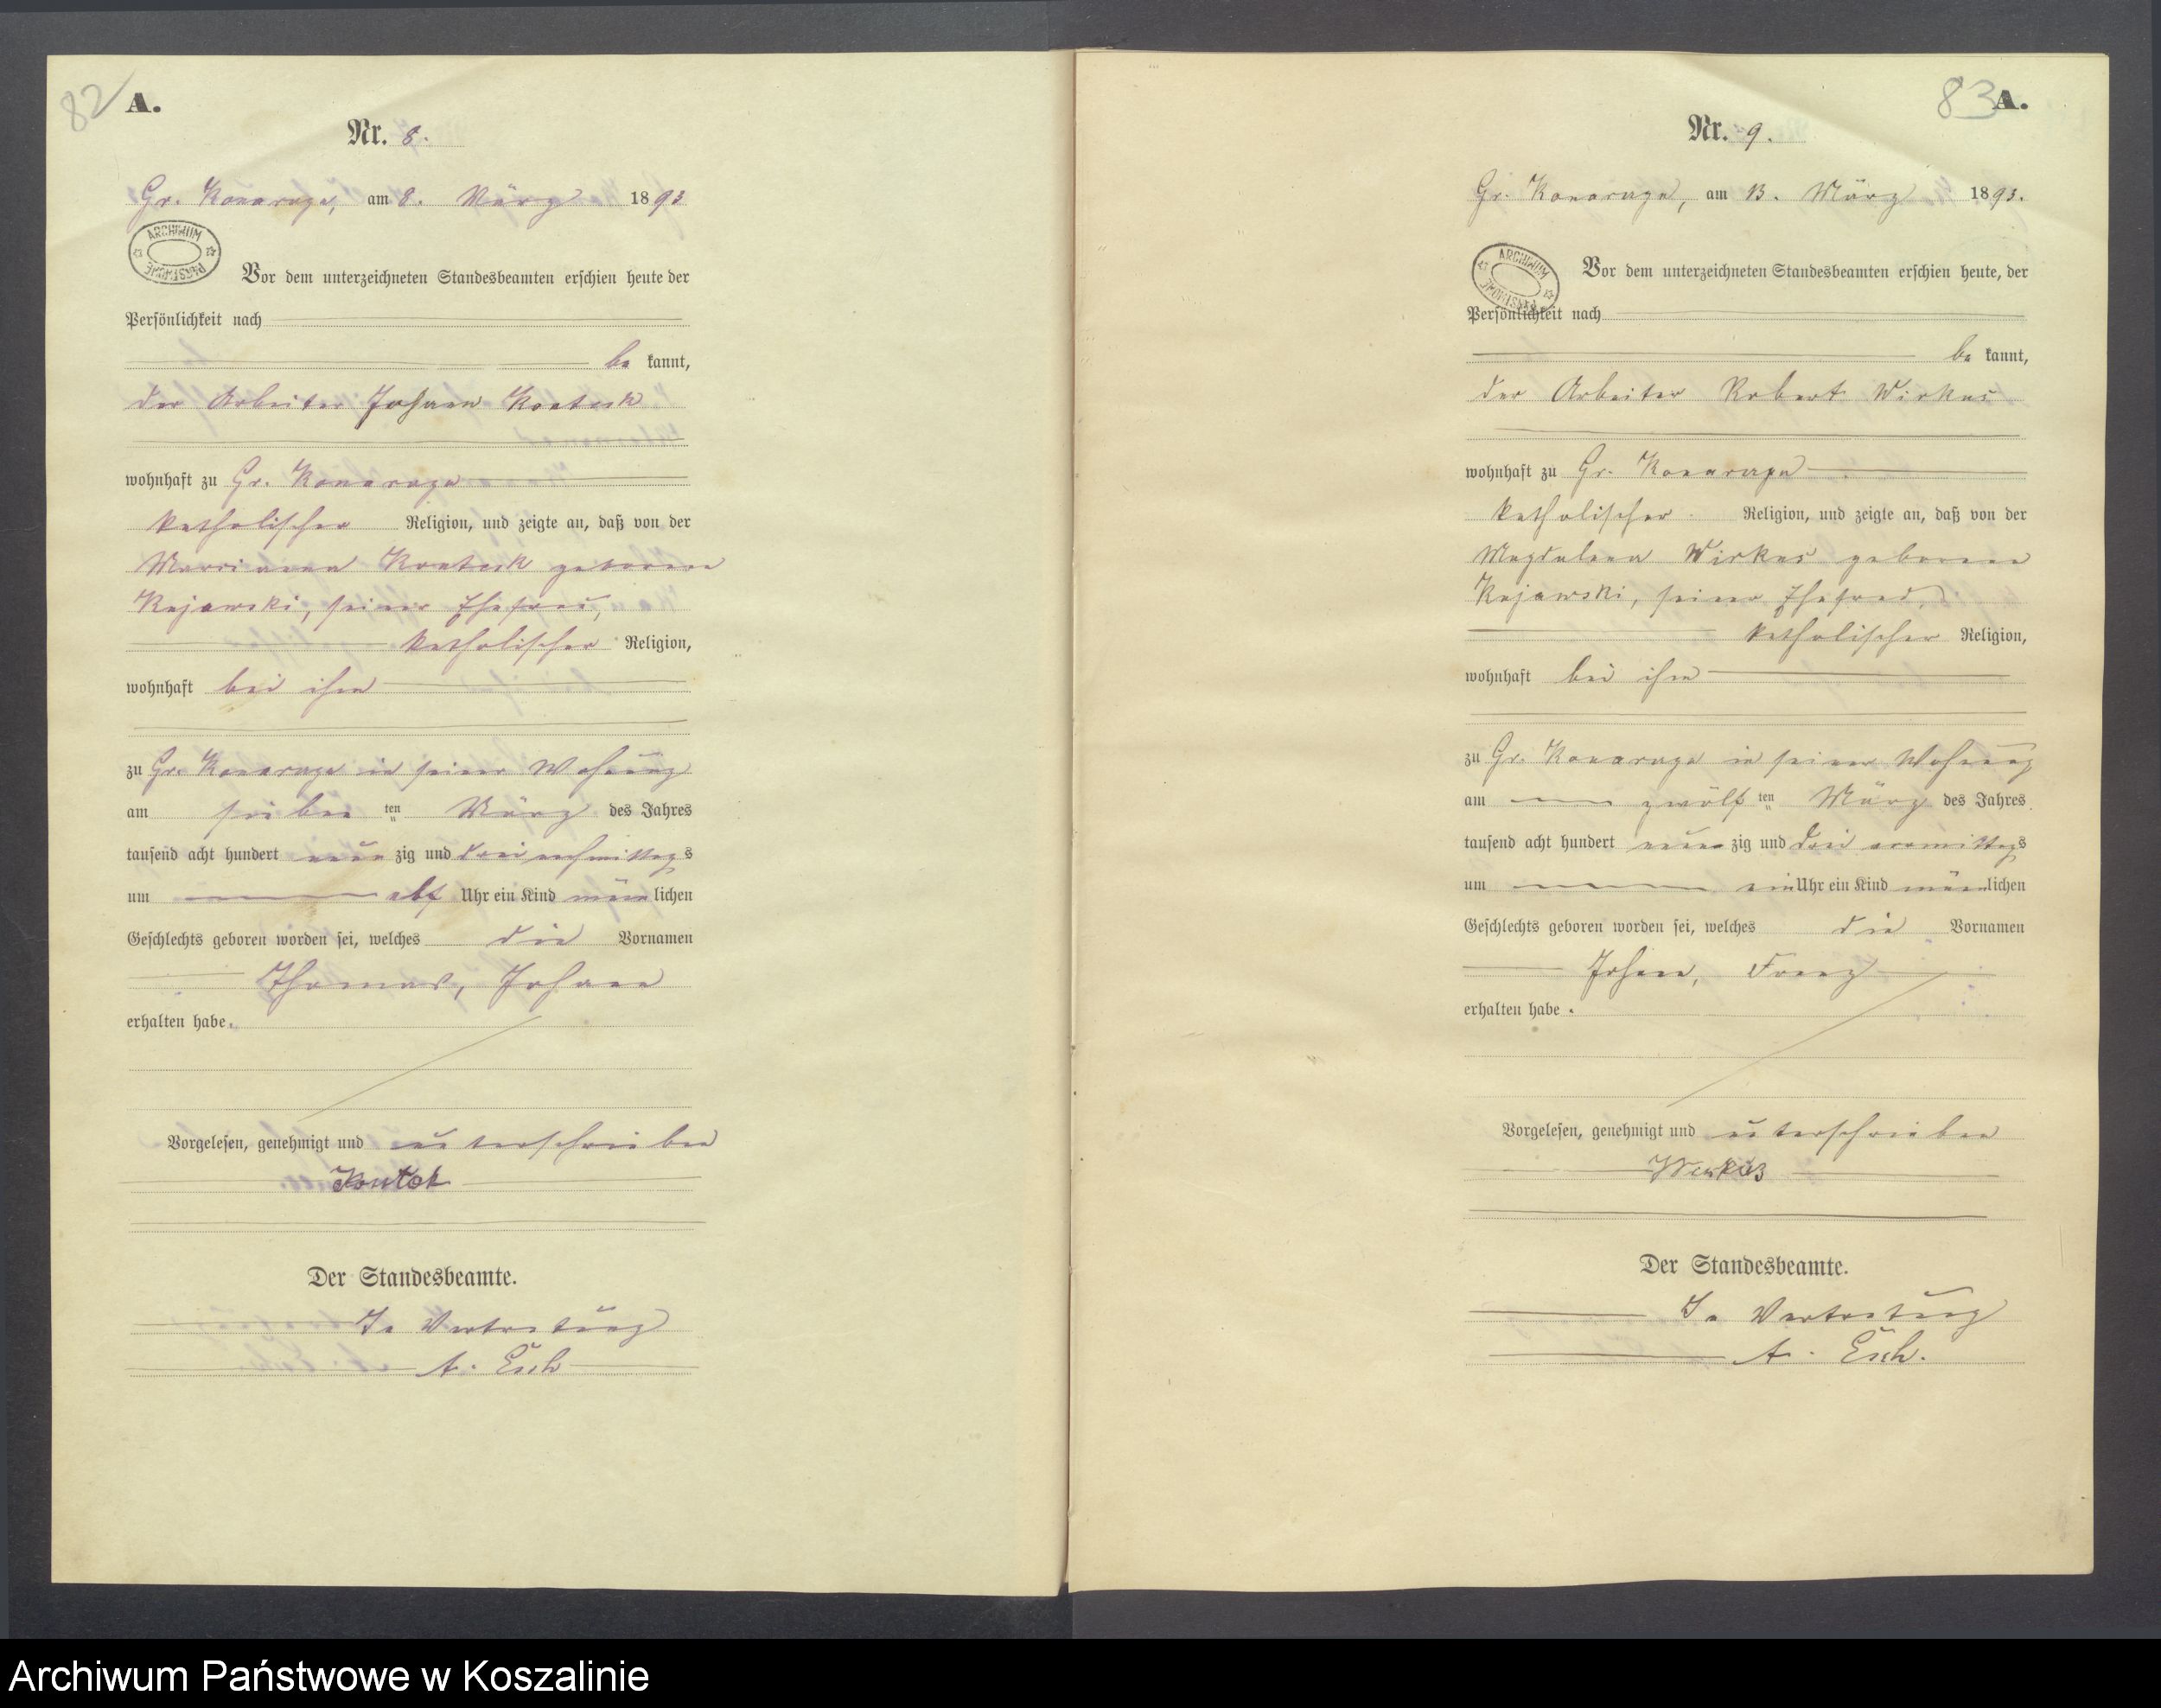 82
A.
Nr. 8.
Gr. Konarczyn, am 8. März 1893
ARCHIWUM PAŃSTWOWE
Vor dem unterzeichneten Standesbeamten erschien heute der
Persönlichkeit nach
be kannt,
der Arbeiter Johann
wohnhaft zu Gr.
katholischer Religion, und zeigte an, daß von der
Marianna geborene
Kujawski, seiner Ehefrau,
katholischer Religion,
wohnhaft bei ihm
zu Gr. in seiner Wohnung
am sieben ten März des Jahres
tausend acht hundert neun zig und drei nachmittags
um elf Uhr ein Kind männ lichen
Geschlechts geboren worden sei, welches die Vornamen
Thomas, Johann
erhalten habe.
Vorgelesen, genehmigt und unterschrieben
Der Standesbeamte.
In Vertretung
A. Esch
83
A.
Nr. 9.
Gr. am 13. März 1893.
ARCHIWUM PAŃSTWOWE
Vor dem unterzeichneten Standesbeamten erschien heute, der
Persönlichkeit nach
be kannt,
der Arbeiter Robert Wirkus
wohnhaft zu Gr.
katholischer Religion, und zeigte an, daß von der
Magdalena Wirkus geborene
Kujawski, seiner Ehefrau,
katholischer Religion,
wohnhaft bei ihm
zu Gr. in seiner Wohnung
am zwölf ten März des Jahres
tausend acht hundert neun zig und drei vormittags
um ein Uhr ein Kind männlichen
Geschlechts geboren worden sei, welches die Vornamen
Johann, Franz
erhalten habe.
Vorgelesen, genehmigt und unterschrieben
Der Standesbeamte.
In Vertretung
A. Esch.
Archiwum Państwowe w Koszalinie